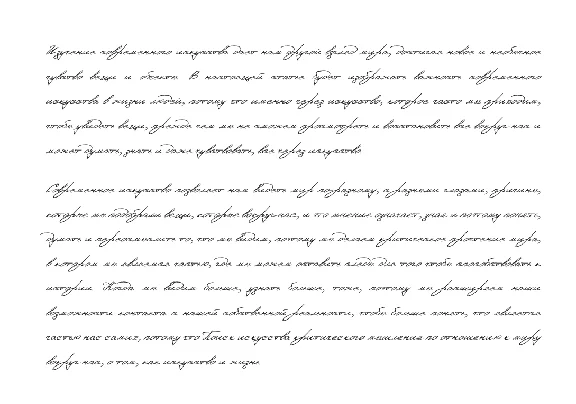 Изучение современного искусства дает нам другой взгляд мира, новое и необычное
чувство вещи и объекты. В настоящей статье будет изображать важность современного
искусства в жизни людей, потому что именно через искусство, которое часто мы приводим,
чтобы увидеть вещи, прежде чем мы не и восстановить все вокруг нас и
может думать, знать и даже чувствовать, как через искусство
Современное искусство позволяет нам видеть мир по-разному, с разными глазами, причины,
которые мы вещи, которые вокруг нас, и это мнение и поэтому понять,
думать и то, что мы видим, потому мы делаем критическое мира,
в котором мы являемся частью, где мы можем оставить след для того чтобы способствовать к
истории. Когда мы видим больше, узнать больше, тоже, потому мы расширяем наши
возможности контакта с нашей собственной реальности, чтобы больше понять, что является
частью нас самих, потому что Поиск искусства критического мышления по отношению к миру
вокруг нас, о том, как искусство и жизнь